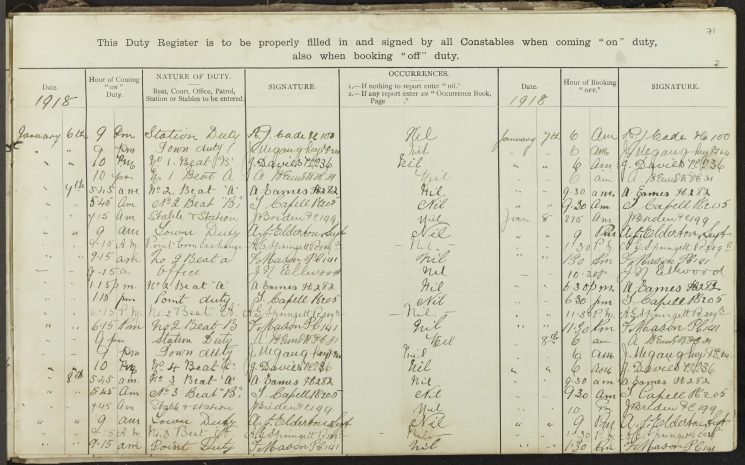 71
This Duty Register is to be properly filled in and signed by all Constables when coming "on" duty,
also when booking "off" duty.
Date. Hour of Coming "ON" Duty. NATURE OF DUTY. Beat, Court, Office, Patrol, Station or Stables to be entered. SIGNATURE. OCCURRENCES. 1.—If nothing to report enter "nil." 2.—If any report enter see "Occurrence Book, Page ." Date. Hour of Booking "OFF." SIGNATURE.
1918 1918
January 6th 9 pm Station Duty R J Cade Pc 100 Nil January 7th 6 Am R J Cade Pc 100
" " 9 pm Town duty Nil " " 6 am
" " 10 Pm No 1. Beat 'B' J. Davies Pc 236 Nil " " 6 am J. Davies Pc 236
" " 10 pm No 1 Beat A Nil " " 6 am
" 7th 5.45 am No 2 Beat "A" A Eames Pc 282 Nil. " " 9.30 am A Eames Pc 282
" " 5.45 Am No 2 Beat "B" T. Capell Pc 205 Nil " " 9.30 Am T. Capell Pc 205
" " 7.15 Am Stable & Station Pc 199 Nil Jan 8 Pc 199
" " 9 am Town Duty A. J. Elderton Sergt Nil " " 9 Pm A. J. Elderton Sergt
" " 9.15 A.M. Point Corn Exchange A. G. Springett - Nil - " " 1.30 P.M. A. G. Springett
" " 9.15 am No 2 Beat a F. Mason Pc 141 Nil " " 1.30 pm F. Mason Pc 141
— " 9.15 a Office J. N. Ellwood Nil — — 10-20 J. N. Ellwood
" " 1.15 p.m. No 2 Beat "A" A Eames Pc 282 Nil " " 6.30 p.m. A Eames Pc 282
" " 1.15 pm Point duty T. Capell Pc 205 Nil " " 6.30 pm T. Capell Pc 205
" " 6.15 P.M. No 2 Beat "A" A. G. Springett - Nil - " " 11.30 P.M. A. G. Springett
" " 6.15 Pm No 2 Beat B F. Mason Pc 141 Nil " " 11.30 Pm F. Mason Pc 141
" " 9 pm Station Duty Nil " 8th 6 am
" " 9 pm Town duty Nil " " 6 am
" " 10 Pm No 4 Beat J. Davies Pc 236 Nil " " 6 am J. Davies Pc 236
" 8th 5.45 am No 3 Beat "A" A Eames Pc 282 Nil " " 9.30 am A Eames Pc 282
" " 5.45 Am No 3 Beat "B" T. Capell Pc 205 Nil " " 9.30 Am T. Capell Pc 205
" " 7.45 Am Stable & Station Pc 199 Nil " " 10 Pm Pc 199
" " 9 am Town Duty A. J. Elderton Sergt Nil " " 9 Pm A. J. Elderton Sergt
" " 9.15 A.M. No 3 Beat "A" A. G. Springett Nil " " 1.30 P.M. A. G. Springett
" " 9.15 am Point Duty F. Mason Pc 141 Nil " " 1.30 pm F. Mason Pc 141